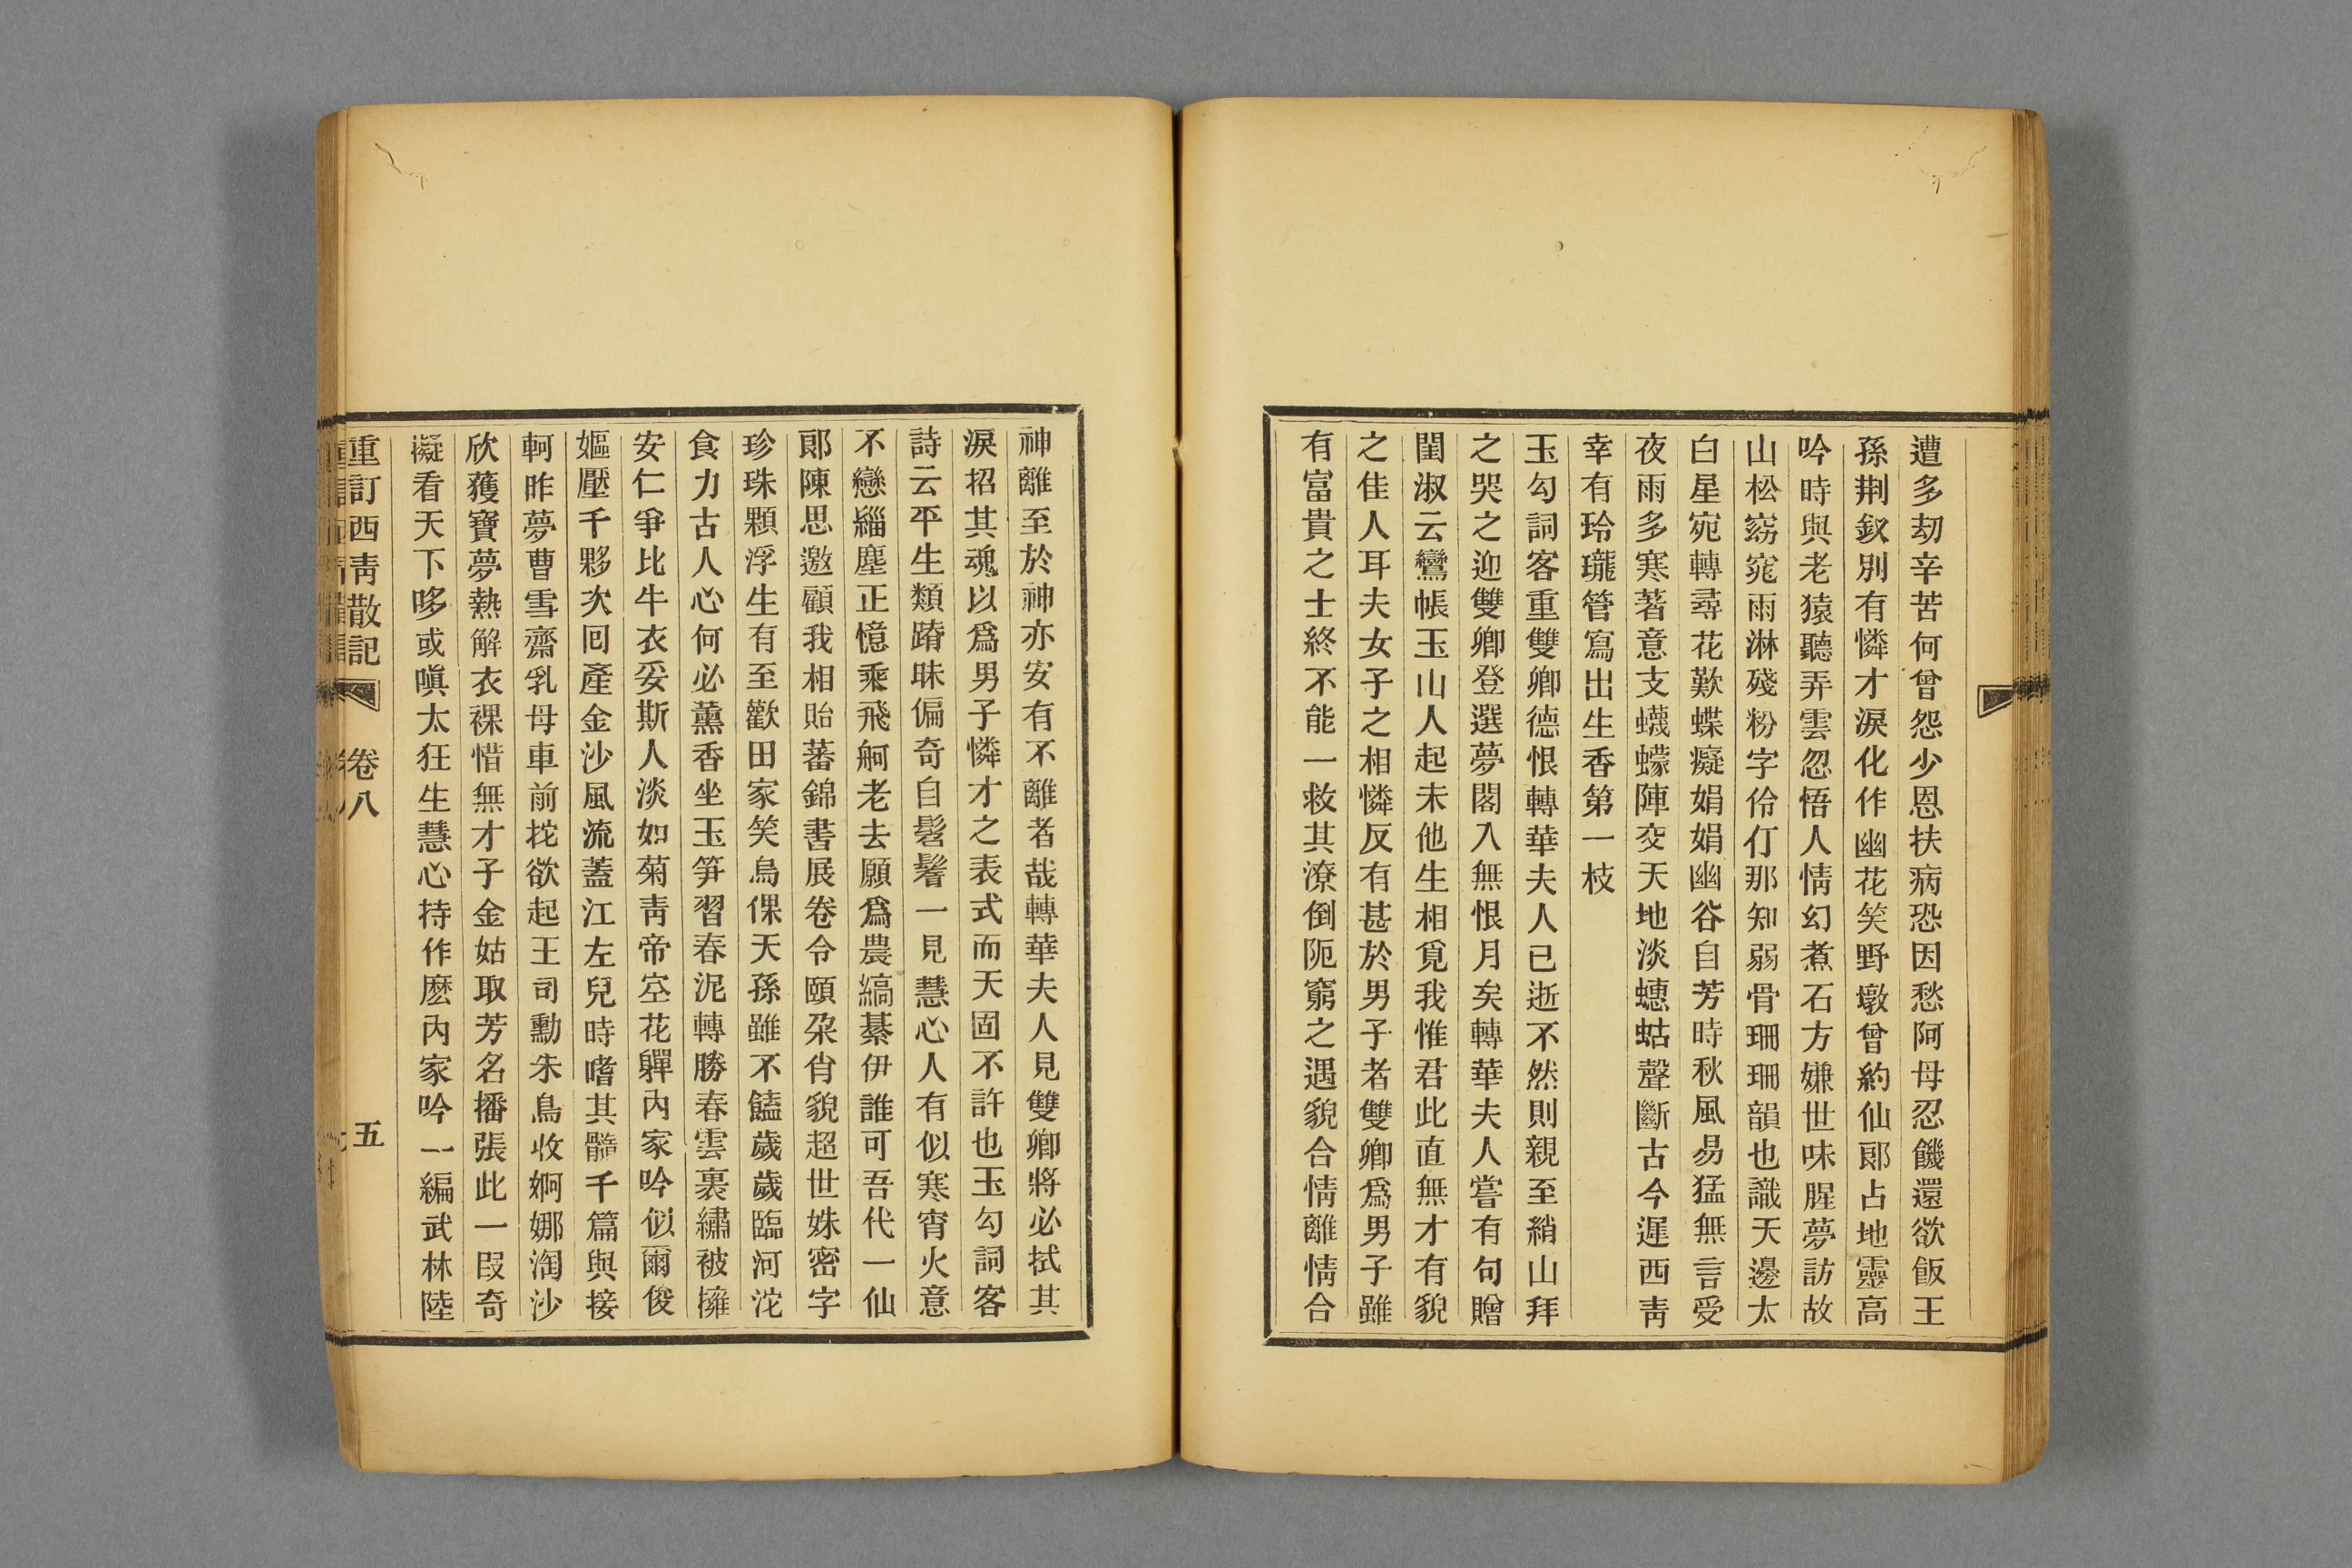 遭多劫辛苦何曾怨少恩扶病恐因愁阿母忍饑還欲飯王
孫荆釵別有憐才淚化作幽花笑野墩曾約仙郞占地靈高
吟時與老猿聽弄雲忽悟人情幻煮石方嫌世味腥夢訪故
山松窈窕雨淋殘粉字伶仃那知弱骨珊珊韻也識天邊太
白星宛轉尋花歎蝶癡娟娟幽谷自芳時秋風易猛無言受
夜雨多寒著意支蠛蠓陣交天地淡蟪蛄聲斷古今遲西靑
幸有玲瓏管寫出生香第一枝
玉勾詞客重雙卿德恨轉華夫人已逝不然則親至綃山拜
之哭之迎雙卿登選夢閣入無恨月矣轉華夫人嘗有句贈
閨淑云鸞帳玉山人起未他生相覓我惟君此直無才有貌
之佳人耳夫女子之相憐反有甚於男子者雙卿爲男子雖
有富貴之士終不能一救其潦倒阨窮之遇貌合情離情合
神離至於神亦安有不離者哉轉華夫人見雙卿將必拭其
淚招其魂以爲男子憐才之表式而天固不許也玉勾詞客
詩云平生類躋昧偏奇自髫髻一見慧心人有似寒宵火意
不戀緇塵正憶乘飛舸老去願爲農縞綦伊誰可吾代一仙
郞陳思邀顧我相貽蕃錦書展卷令頤朶肖貌超世姝密字
珍珠顆浮生有至歡田家笑鳥倮天孫雖不饁歲歲臨河沱
食力古人心何必薰香坐玉笋習春泥轉勝春雲裏繡被擁
安仁爭比牛衣妥斯人淡如菊靑帝空花嚲內家吟似爾俊
嫗壓千夥次回產金沙風流蓋江左兒時嗜其髓千篇與接
軻昨夢曹雪齋乳母車前拕欲起王司勳朱鳥收婀娜淘沙
欣獲寶夢熱解衣裸惜無才子金姑取芳名播張此一叚奇
擬看天下哆或嗔太狂生慧心持作麽內家吟一編武林陸
重訂西靑散記 卷八 五